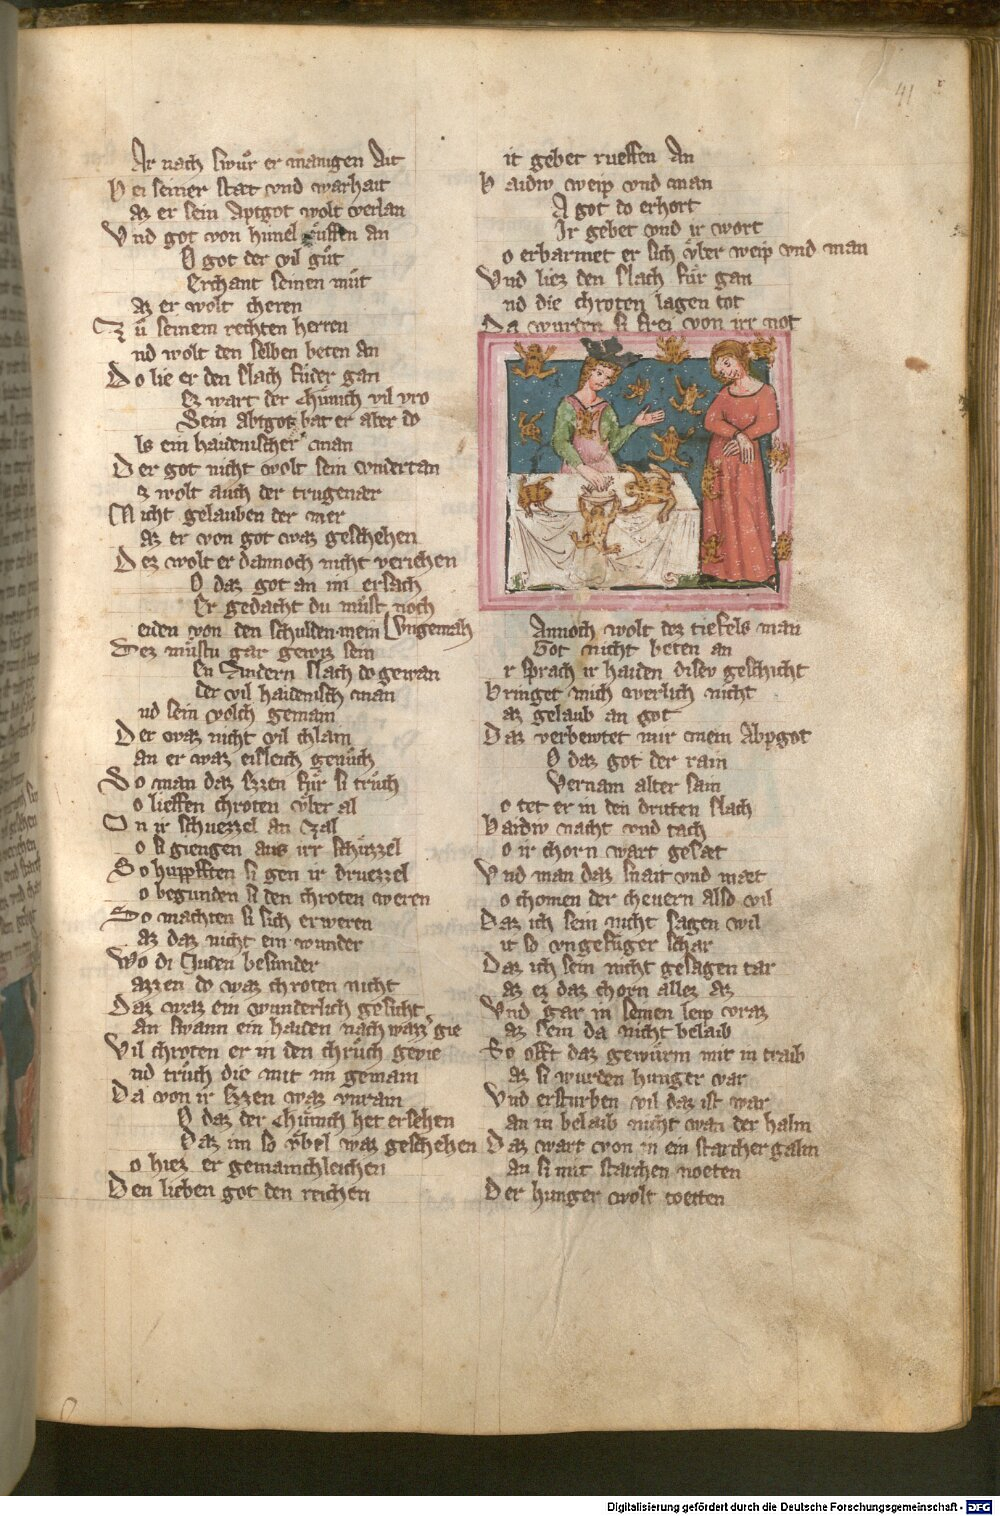 41
Ar nach swuͦr er manigen Ait
Bei seiner stæt vnd warhait
az er sein Aptgot wolt verlan
Vnd got von himel ruͤffen an
O got der vil guͤt
Erchant seinen muͤt
az er wolt cheren
Zuͤ seinem rechten herren
nd wolt den selben beten an
Do lie er den slach fuͤder gan
Ez wart der chuͤnich vil vro
Sein abtgot bat er aber do
ls ein haidenischer man
Der got nicht wolt sein vndertan
z wolt auch der trugenær
Nicht gelauben der mer
az er von got waz geschehen
Dez wolt er dannoch nicht veriehen
O daz got an im ersach
Er gedacht du muͤst noch
eiden von den schulden mein Vngemach
Dez muͤstu gar gewiz sein
En Andern slach do gewan
der vil haidenisch man
nd sein volch gemain
Der waz nicht vil chlain
an er waz eisleich genuͤch
Do man daz Ezzen fuͤr si truͤch
o lieffen chroten vͤber al
On ir schuezzel an Zal
o si giengen auz irr schuͤzzel
So hupfften si gen ir druezzel
o begunden si den chroten weren
So machten si sich erweren
az daz nicht ein wunder
Wo di Juden besunder
azzen do waz chroten nicht
Daz waz ein wunderlich gesicht
an swann ein haiden nach wazzer gie
Vil chroten er in den chruͤch gevie
nd truͤch die mit im gemain
Da von ir Ezzen waz vnrain
O daz der Chuͤnich het ersehen
Daz im so vͤbel waz geschehen
o hiez er gemainchleichen
Den lieben got den reichen
it gebet rueffen An
Baidiv weip vnd man
A got do erhort
Ir gebet vnd ir wort
o erbarmet er sich vͤber weip vnd man
Vnd liez den slach fuͤr gan
nd die chroten lagen tot
Da wurden si frei von irr not
Annoch wolt dez tiefels man
Got nicht beten an
r sprach ir haiden disev geschicht
Bringet mich werlich nicht
az gelaub an got
Daz verbewtet mir mein Abpgot
O daz got der rain
Vernam alter sain
o tet er in den dritten slach
Baidiv nacht vnd tach
o ir chorn wart gesæt
Vnd man daz snait vnd mæt
o chomen der chevern also vil
Daz ich sein nicht sagen wil
it so vngefuͤger schar
Daz ich sein nicht gesagen tar
az ez daz chorn allez az
Vnd gar in seinen leip vraz
az sein da nicht belaib
So offt daz gewurm mit in traib
az si wurden hunger var
Vnd ersturben vil daz ist war
an in belaib nicht wan der halm
Daz wart von in ein starcher galm
an si mit starchen noeten
Der hunger wolt toetten
Digitalisierung gefördert durch die Deutsche Forschungsgemeinschaft - DFG